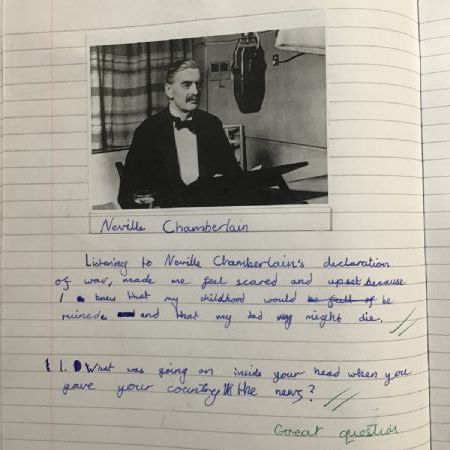 Neville Chamberlain
Listening to Neville Chamberlain's declaration
of war, made me feel scared and upset because
I knew that my childhood would be full of be
ruined. and that my dad might die.
1. What was going on inside your head when you
gave your country the news?
Great question